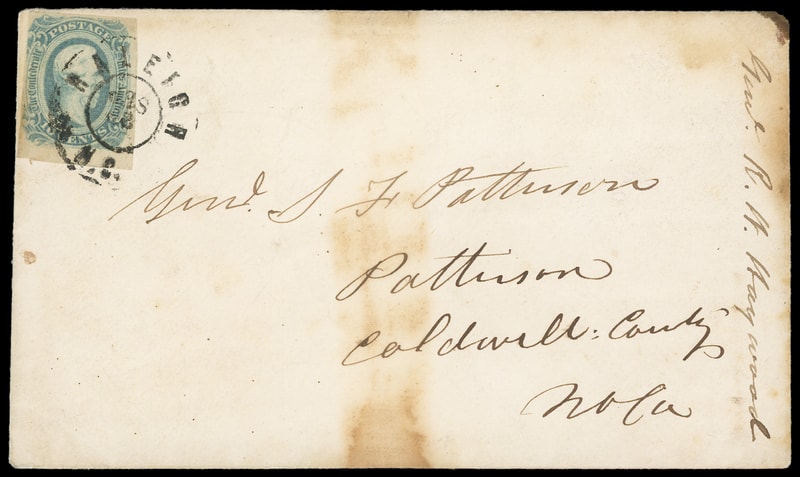 POSTAGE
The Confederate
States America
TEN CENTS
RALEIGH
Genl. S. F Patterson
Patterson
Caldwell: County
No Ca
Genl. R. W. Haywood